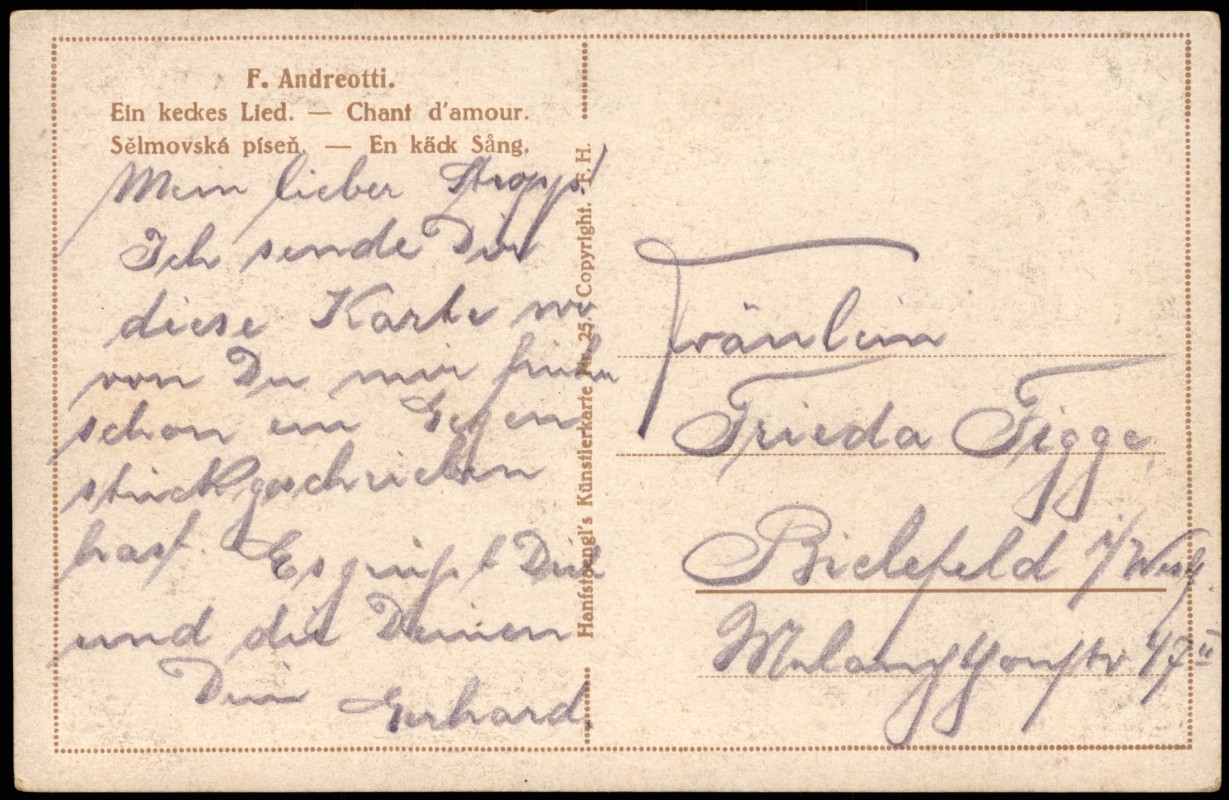 F. Andreotti.
Ein keckes Lied. — Chant d'amour.
Sělmovská píseň. — En käck Sång.
Mein lieber Stropp!
Ich sende Dir
diese Karte wo
von Du mir früher
schon ein Gegen
stück geschrieben
hast. Es grüßt Dich
und die Deinen
Dein Gerhard.
Hanfstaengl's Künstlerkarte Nr. 25. Copyright. F. H.
Fräulein
Frieda Figge
Bielefeld i/Westf.
Melanchthonstr 47 II